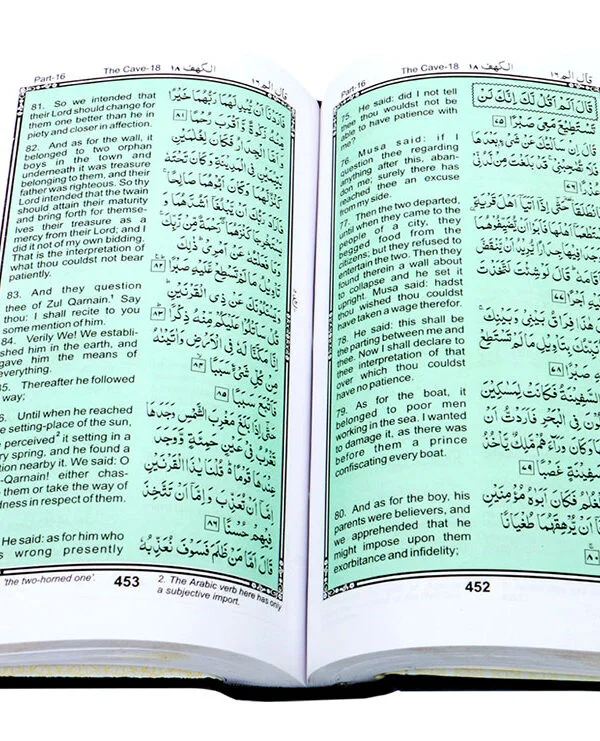 Part-16 The Cave-18 الكهف ١٨ قال الم ١٦
75. He said: did I not tell
thee thou wouldst not be
able to have patience with
me?
76. Musa said: if I
question thee regarding
anything after this, aban-
don me; surely there has
reached thee an excuse
from my side.
77. Then the two departed,
until when they came to the
people of a city, they
begged food from the
citizens; but they refused to
entertain the two. Then they
found therein a wall about
to collapse and he set it
upright. Musa said: hadst
thou wished thou couldst
have taken a wage therefor.
78. He said: this shall be
the parting between me and
thee. Now I shall declare to
thee interpretation of that
over which thou couldst
have no patience.
79. As for the boat, it
belonged to poor men
working in the sea. I wanted
to damage it, as there was
before them a prince
confiscating every boat.
80. And as for the boy, his
parents were believers, and
we apprehended that he
might impose upon them
exorbitance and infidelity;
قَالَ اَلَمْ اَقُلْ لَّكَ اِنَّكَ لَنْ
تَسْتَطِيْعَ مَعِيَ صَبْرًا ٧٥
قَالَ اِنْ سَاَلْتُكَ عَنْ شَيْءٍ بَعْدَهَا
فَلَا تُصٰحِبْنِيْ قَدْ بَلَغْتَ مِنْ لَّدُنِّيْ
عُذْرًا ٧٦
فَانْطَلَقَا حَتّٰٓى اِذَآ اَتَيَآ اَهْلَ قَرْيَةِ
اَهْلَهَا فَاَبَوْا اَنْ يُّضَيِّفُوْهُمَا
فَوَجَدَا فِيْهَا جِدَارًا يُّرِيْدُ اَنْ يَّنْقَضَّ
فَاَقَامَهٗ قَالَ لَوْ شِئْتَ لَتَّخَذْتَ
عَلَيْهِ اَجْرًا ٧٧
قَالَ هٰذَا فِرَاقُ بَيْنِيْ وَبَيْنِكَ
سَاُنَبِّئُكَ بِتَاْوِيْلِ مَا لَمْ تَسْتَطِعْ
عَّلَيْهِ صَبْرًا ٧٨
اَمَّا السَّفِيْنَةُ فَكَانَتْ لِمَسٰكِيْنَ
يَعْمَلُوْنَ فِي الْبَحْرِ فَاَرَدْتُّ اَنْ
اَعِيْبَهَا وَكَانَ وَرَآءَهُمْ مَّلِكٌ يَّاْخُذُ
كُلَّ سَفِيْنَةٍ غَصْبًا ٧٩
وَاَمَّا الْغُلٰمُ فَكَانَ اَبَوٰهُ مُؤْمِنَيْنِ
فَخَشِيْنَآ اَنْ يُّرْهِقَهُمَا طُغْيَانًا
٨٠
452
Part-16 The Cave-18 الكهف ١٨ قال الم ١٦
81. So we intended that
their Lord should change for
them one better than he in
piety and closer in affection.
82. And as for the wall, it
belonged to two orphan
boys in the town and
underneath it was treasure
belonging to them, and their
father was righteous. So thy
Lord intended that the twain
should attain their maturity
and bring forth for themse-
lves their treasure as a
mercy from their Lord; and I
did it not of my own bidding.
That is the interpretation of
what thou couldst not bear
patiently.
83. And they question
thee of Zul Qarnain.¹ Say
thou: I shall recite to you
some mention of him.
84. Verily We! We establi-
shed him in the earth, and
gave him the means of
everything.
85. Thereafter he followed
way;
6. Until when he reached
e setting-place of the sun,
e perceived² it setting in a
ry spring, and he found a
tion nearby it. We said: O
-Qarnain! either chas-
them or take the way of
dness in respect of them.
He said: as for him who
s wrong presently
فَاَرَدْنَآ اَنْ يُّبْدِلَهُمَا رَبُّهُمَا خَيْرًا
مِّنْهُ زَكٰوةً وَّاَقْرَبَ رُحْمًا ٨١
وَاَمَّا الْجِدَارُ فَكَانَ لِغُلٰمَيْنِ
يَتِيْمَيْنِ فِي الْمَدِيْنَةِ وَكَانَ تَحْتَهٗ
كَنْزٌ لَّهُمَا وَكَانَ اَبُوْهُمَا صَالِحًا
فَاَرَادَ رَبُّكَ اَنْ يَّبْلُغَآ اَشُدَّهُمَا وَ
يَسْتَخْرِجَا كَنْزَهُمَا رَحْمَةً مِّنْ رَّبِّكَ
وَمَا فَعَلْتُهٗ عَنْ اَمْرِيْ ذٰلِكَ
تَاْوِيْلُ مَا لَمْ تَسْطِعْ عَّلَيْهِ صَبْرًا ٨٢
وَيَسْـَٔلُوْنَكَ عَنْ ذِي الْقَرْنَيْنِ
قُلْ سَاَتْلُوْا عَلَيْكُمْ مِّنْهُ ذِكْرًا ٨٣
اِنَّا مَكَّنَّا لَهٗ فِي الْاَرْضِ وَاٰتَيْنٰهُ
مِنْ كُلِّ شَيْءٍ سَبَبًا ٨٤
فَاَتْبَعَ سَبَبًا ٨٥
حَتّٰٓى اِذَا بَلَغَ مَغْرِبَ الشَّمْسِ وَجَدَهَا
تَغْرُبُ فِيْ عَيْنٍ حَمِئَةٍ وَّوَجَدَ
عِنْدَهَا قَوْمًا قُلْنَا يٰذَا الْقَرْنَيْنِ
اِمَّآ اَنْ تُعَذِّبَ وَاِمَّآ اَنْ تَتَّخِذَ
فِيْهِمْ حُسْنًا ٨٦
قَالَ اَمَّا مَنْ ظَلَمَ فَسَوْفَ نُعَذِّبُهٗ
'the two-horned one'. 453 2. The Arabic verb here has only
a subjective import.